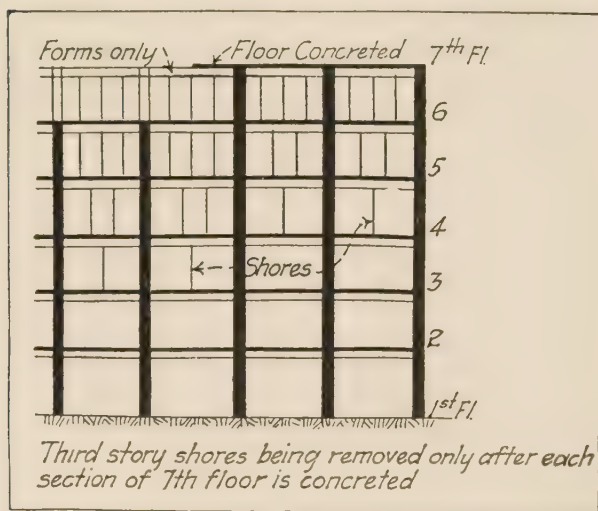 Forms only Floor Concreted 7th Fl.
6
5
4
Shores
3
2
1st Fl.
Third story shores being removed only after each
section of 7th floor is concreted